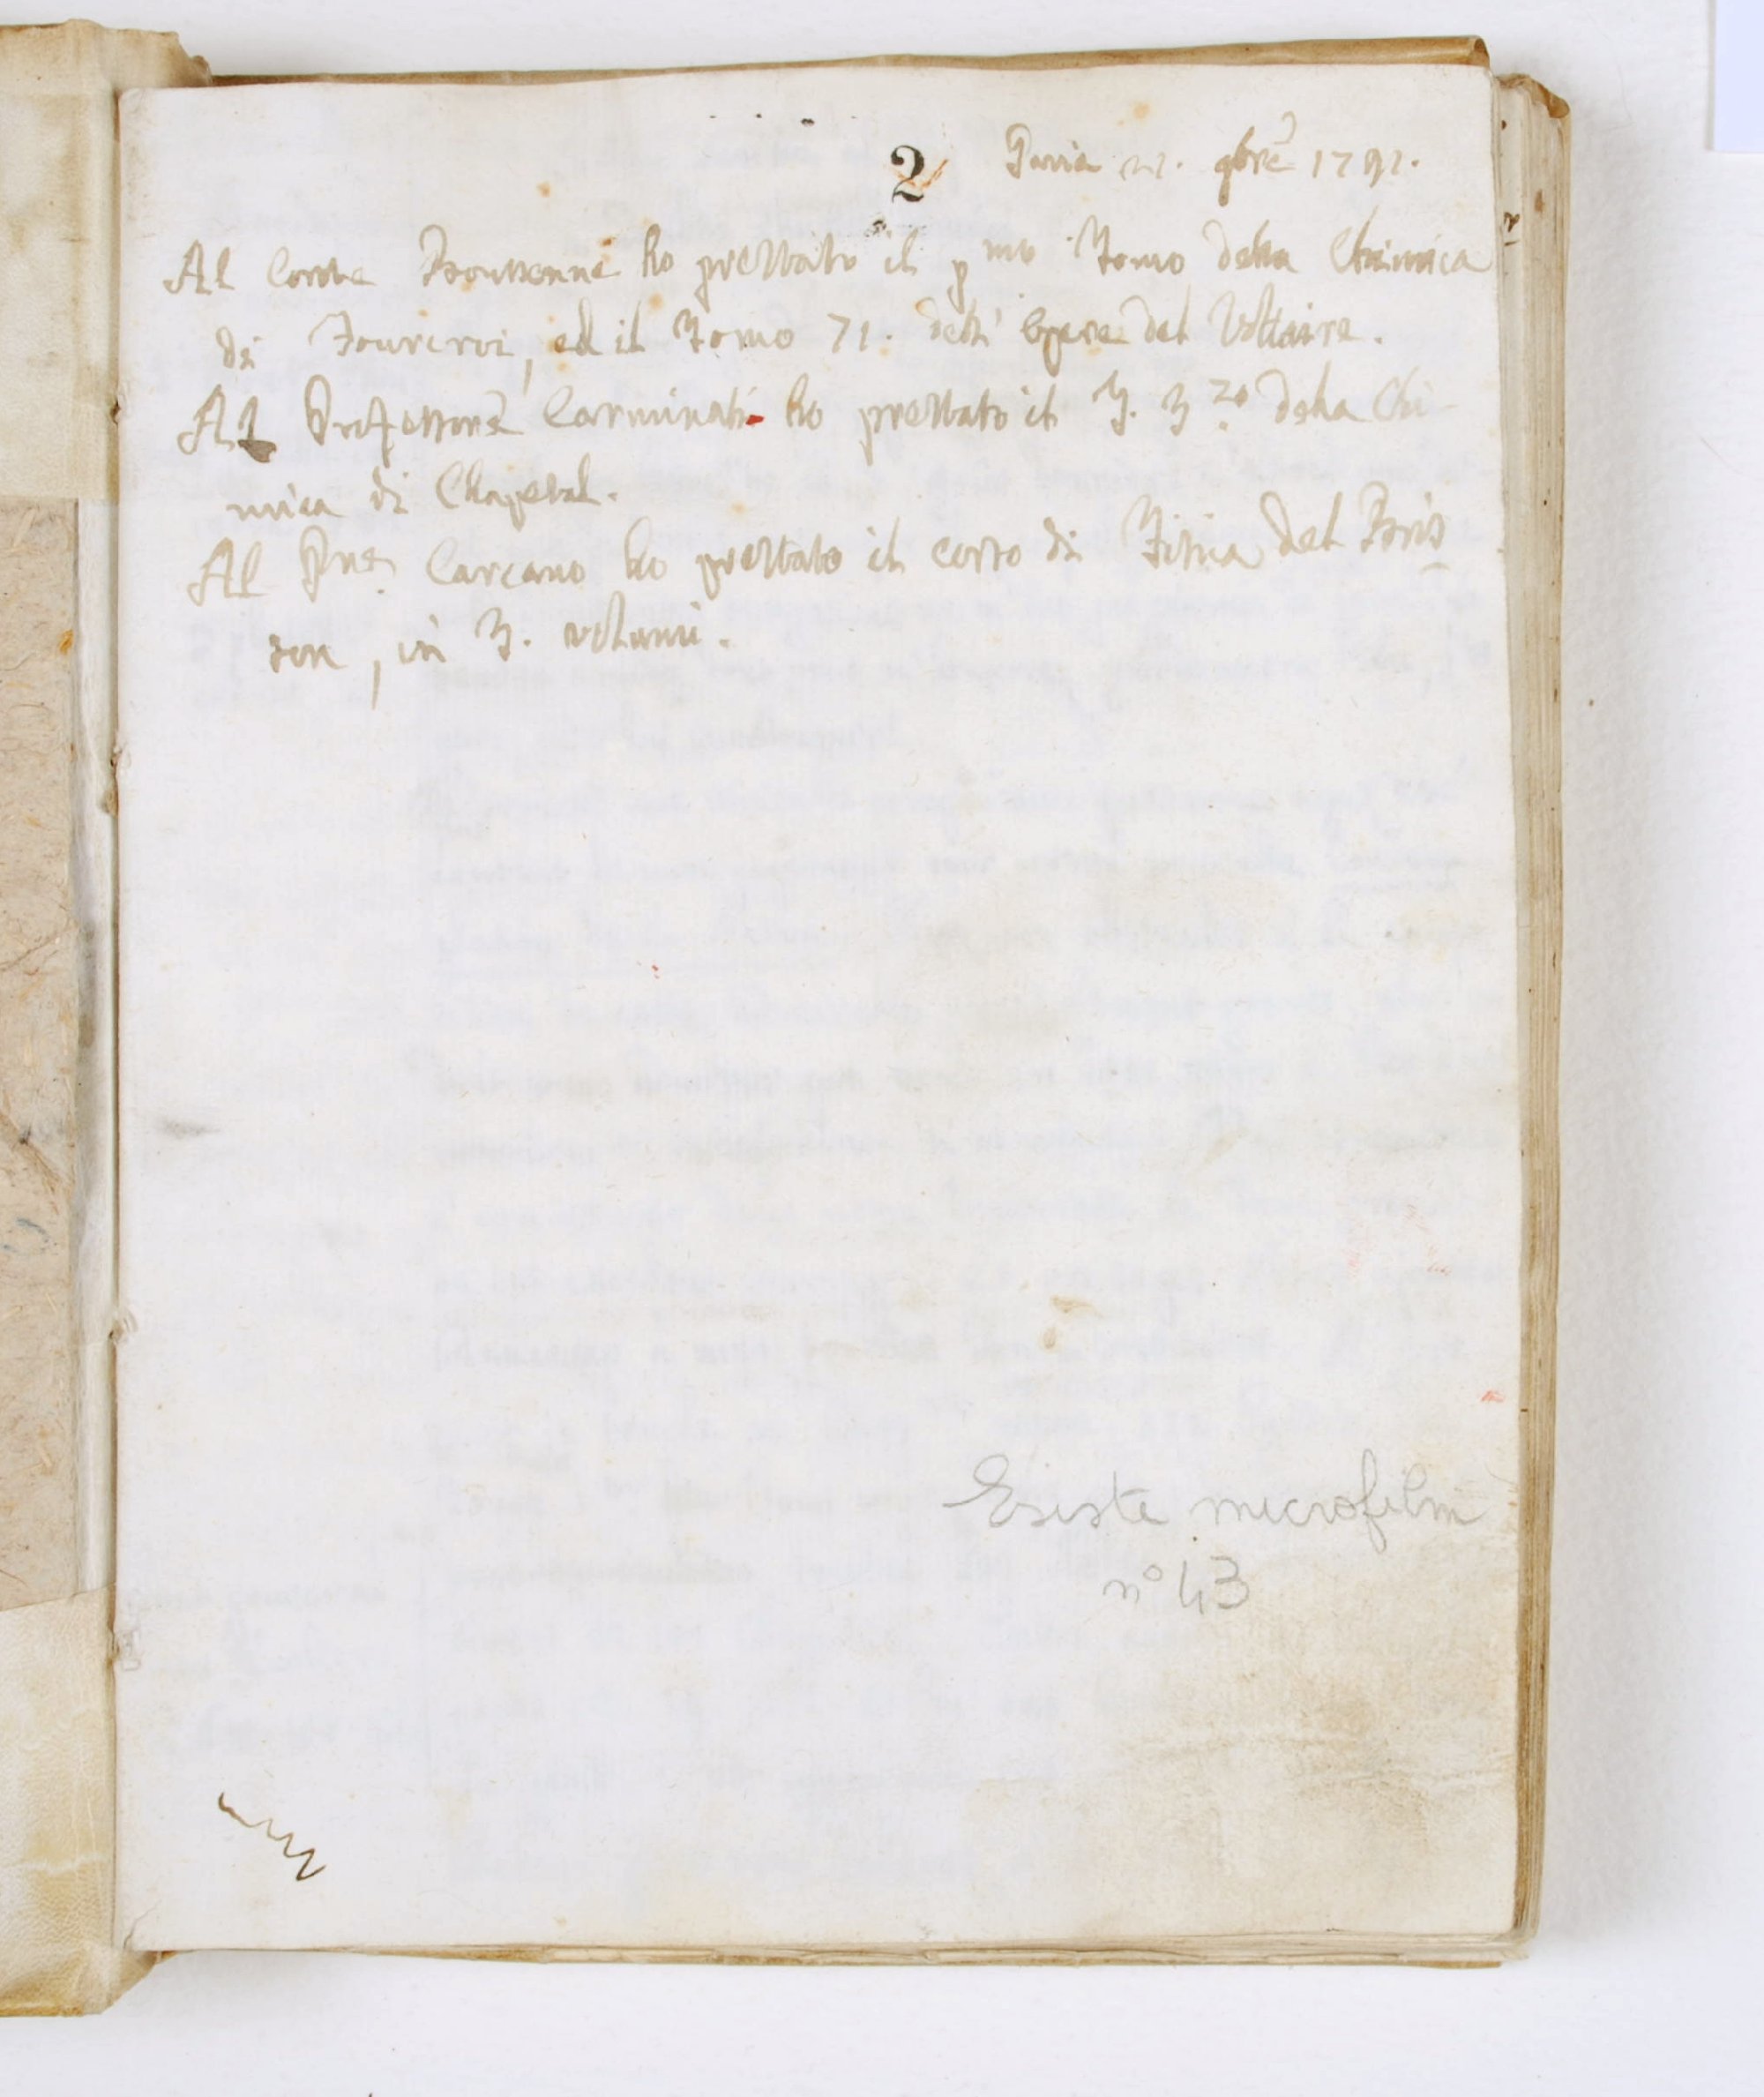 2
Pavia 21. 9bre 1791.
Al Conte ho prestato il pmo Tomo della Chimica
di Fourcroi, ed il Tomo 71. dell' Opere del Voltaire.
Al Professore Carminati ho prestato il T. 3zo della Chi-
mica di Chaptal.
Al Pre Carcano ho prestato il corso di Fisica del Bris
son, in 3. volumi.
Esiste microfilm
n° 43